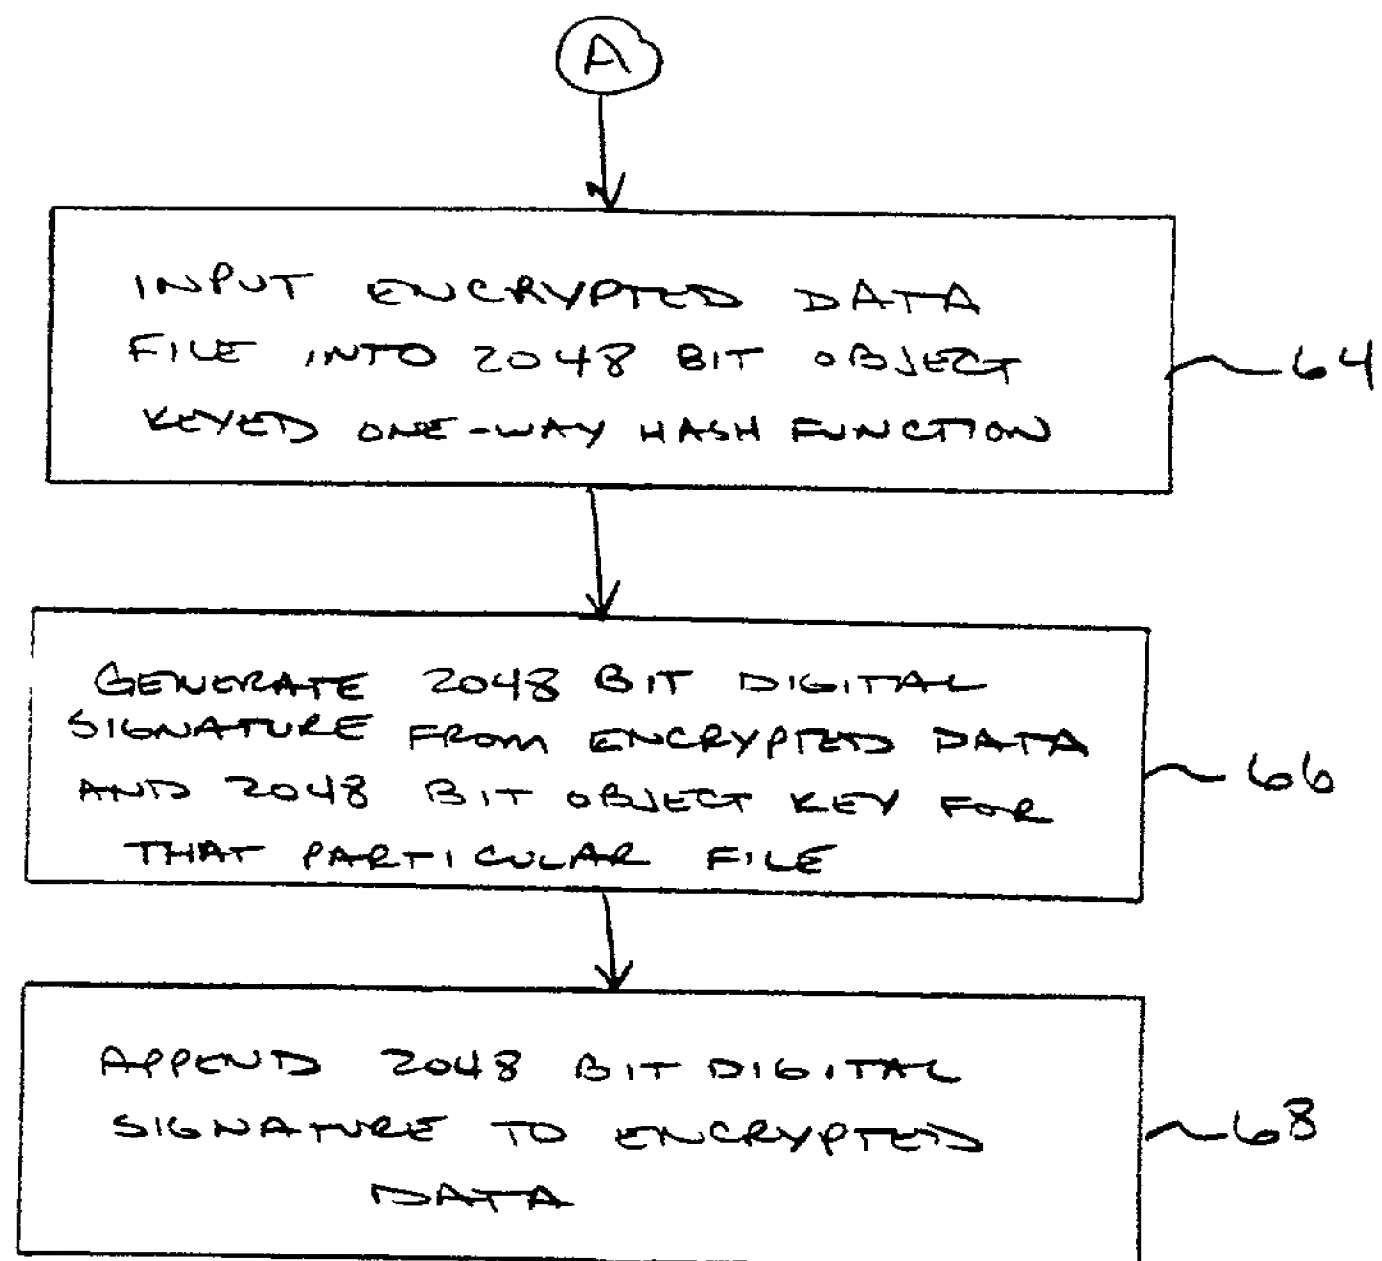 A
INPUT ENCRYPTED DATA
FILE INTO 2048 BIT OBJECT
KEYED ONE-WAY HASH FUNCTION
64
GENERATE 2048 BIT DIGITAL
SIGNATURE FROM ENCRYPTED DATA
AND 2048 BIT OBJECT KEY FOR
THAT PARTICULAR FILE
66
APPEND 2048 BIT DIGITAL
SIGNATURE TO ENCRYPTED
DATA
68